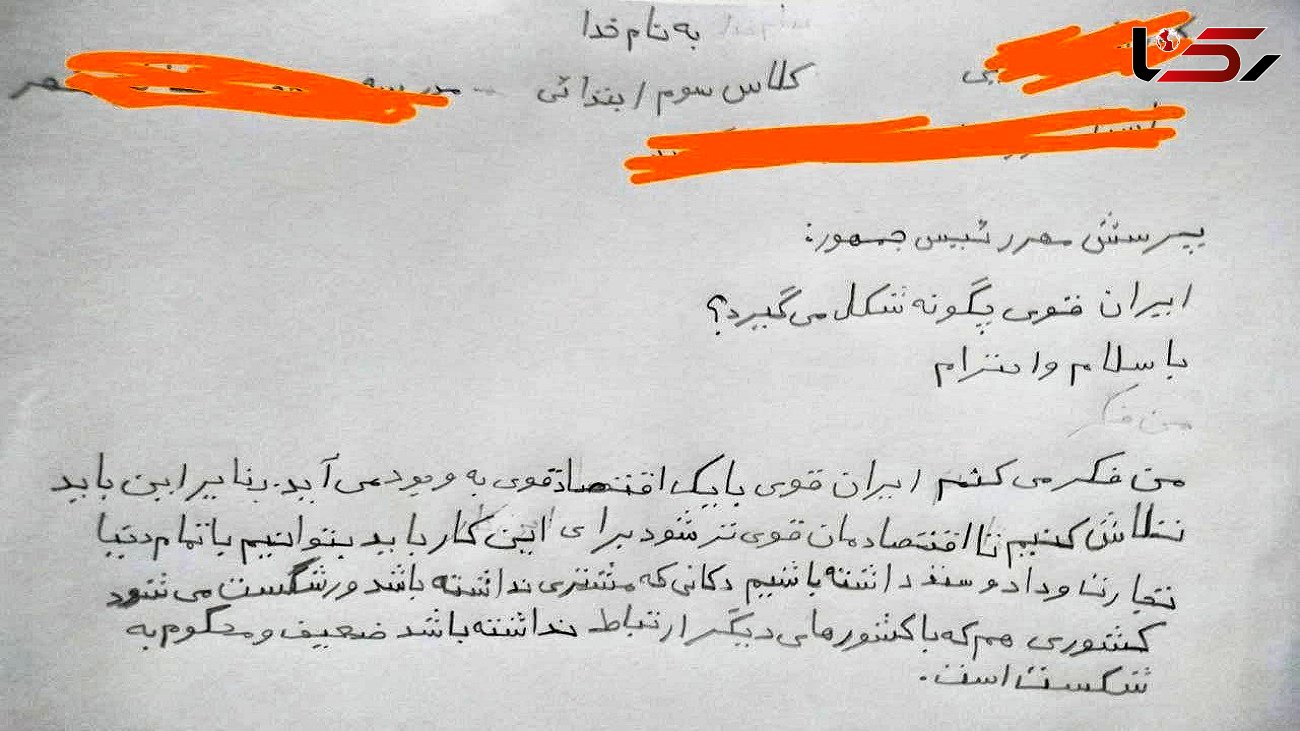 به نام خدا
رکنا
کلاس سوم ابتدائی
پرسش مهر رئیس جمهور:
ایران قوی چگونه شکل می‌گیرد؟
با سلام و احترام
من فکر
من فکر می کنم ایران قوی با یک اقتصاد قوی به وجود می آید. بنابراین باید
تلاش کنیم تا اقتصادمان قوی تر شود برای این کار باید بتوانیم با تمام دنیا
تجارت و داد و ستد داشته باشیم دکانی که مشتری نداشته باشد ورشکست می شود
کشوری هم که با کشورهای دیگر ارتباط نداشته باشد ضعیف و محکوم به
شکست است.